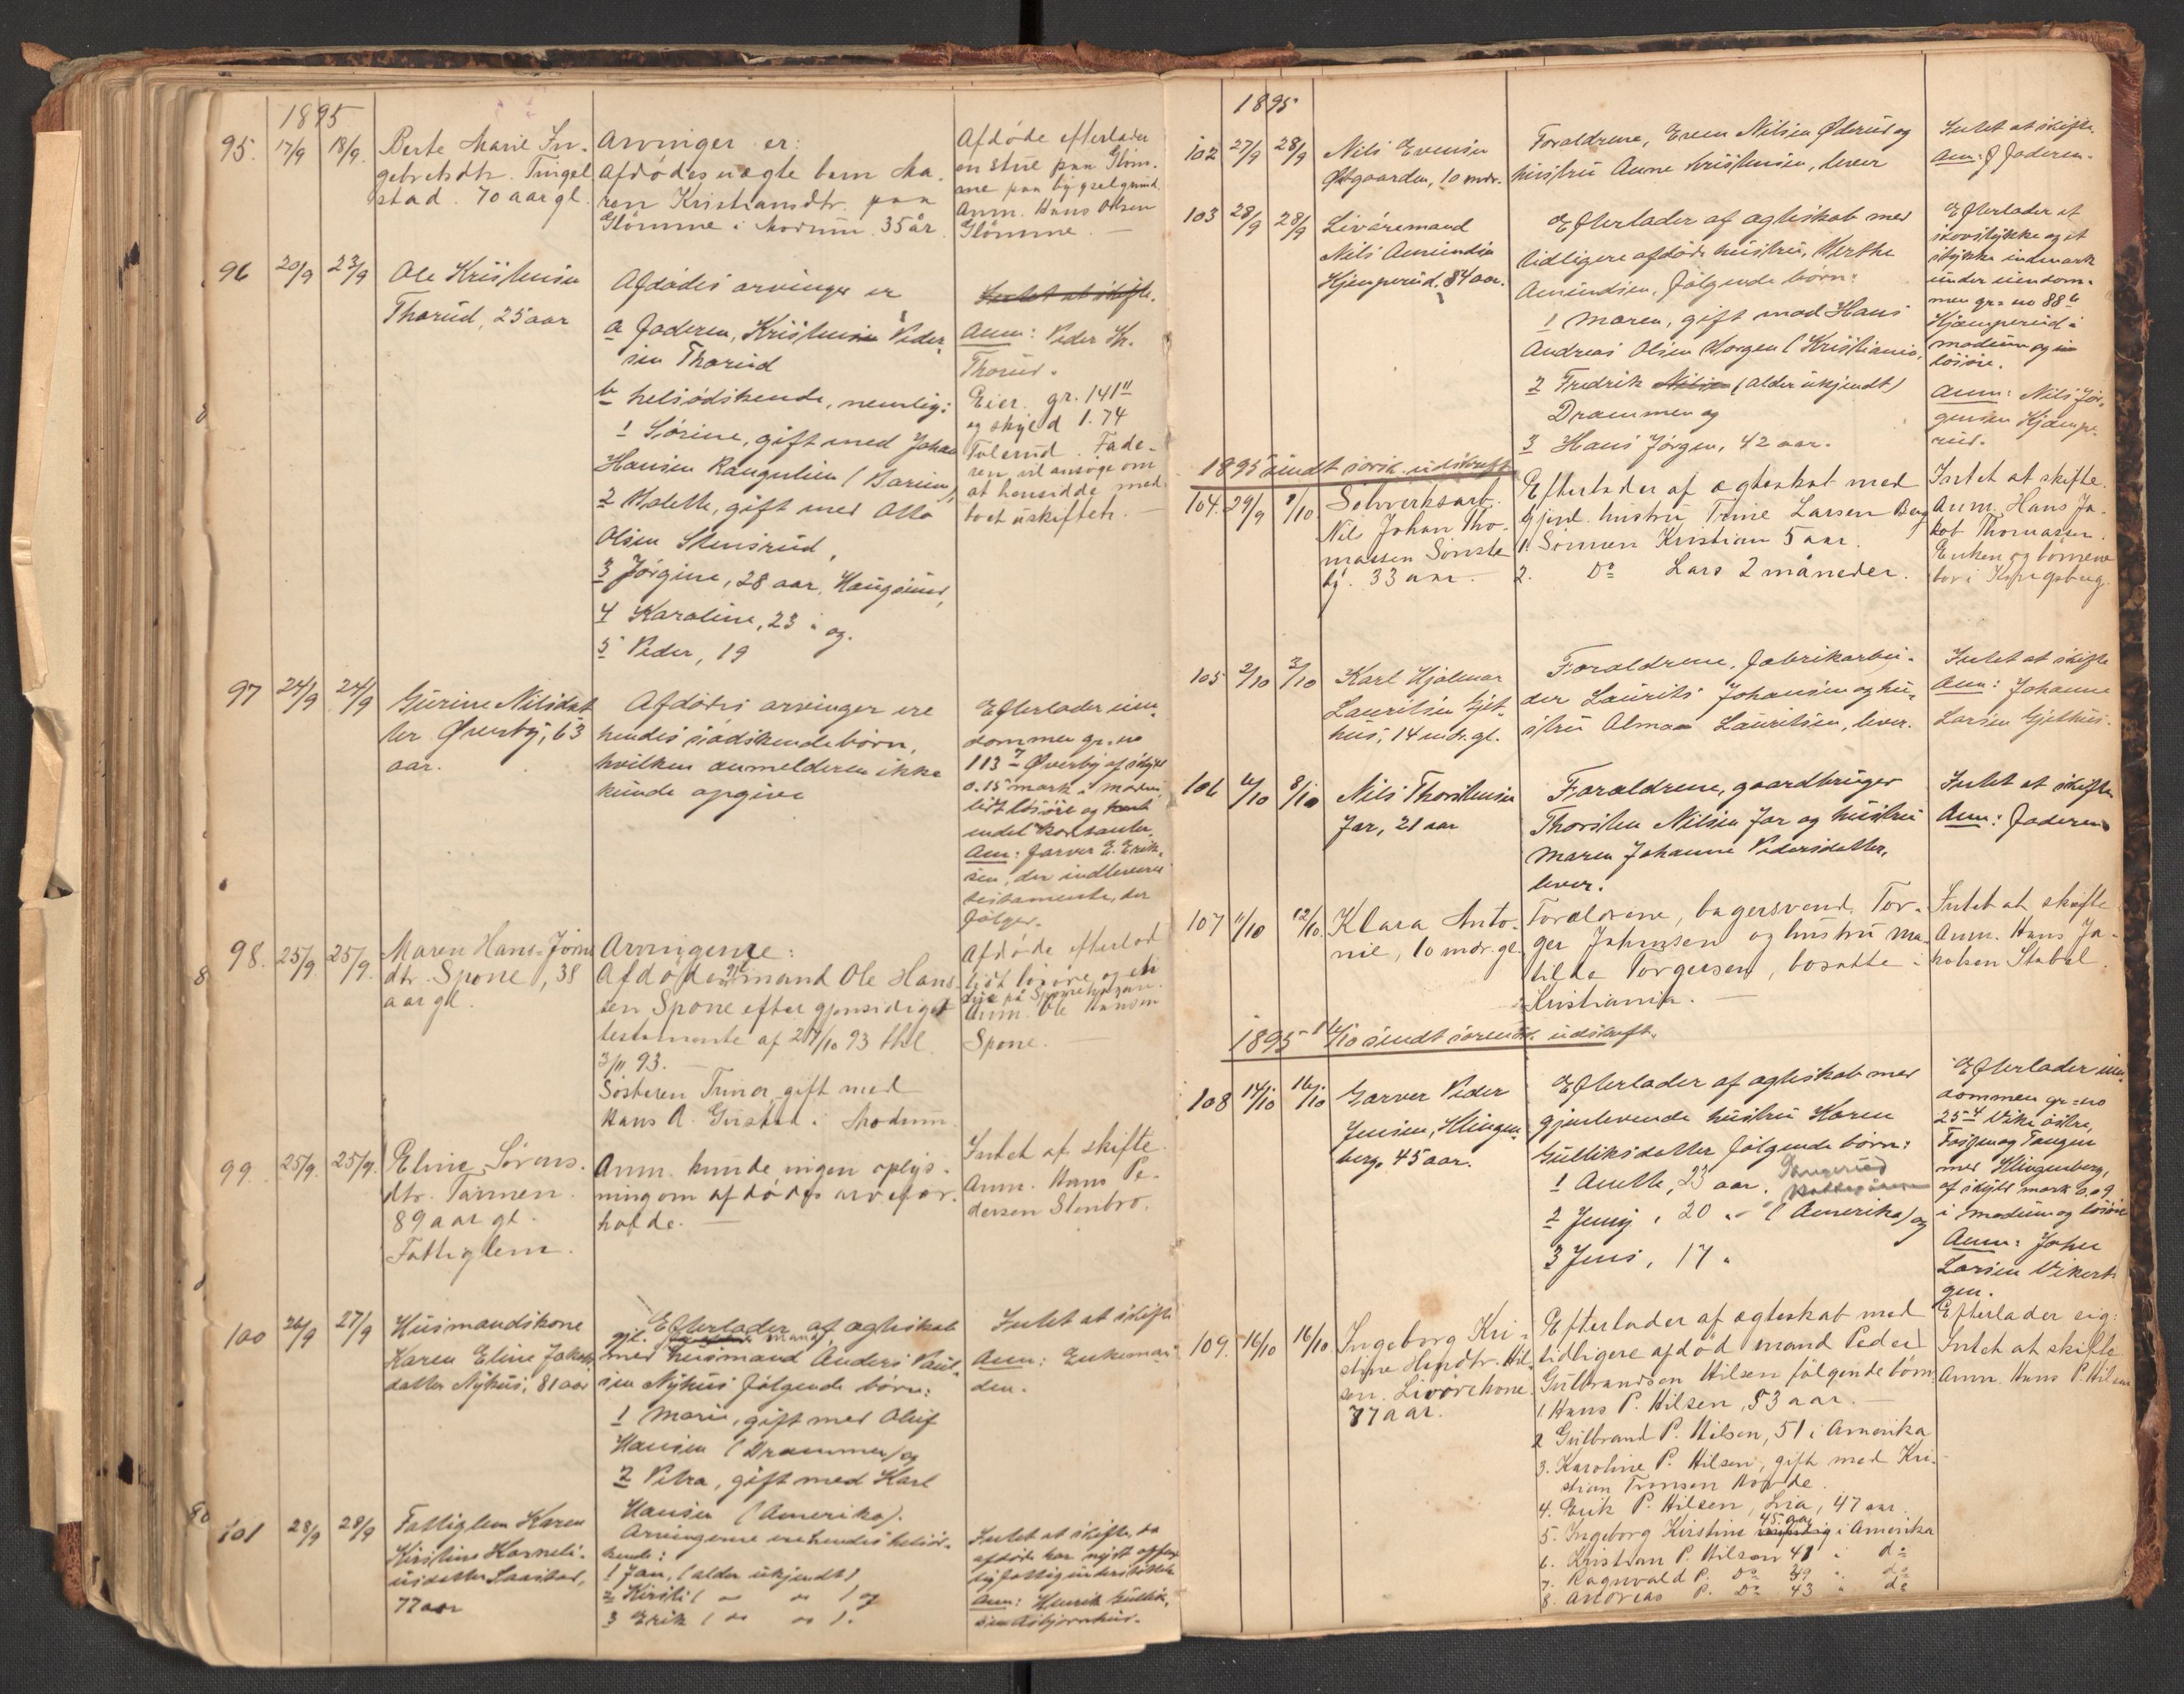 1895
95. 17/9 18/9.
Berte Marie In-
gebretsdtr. Tingel
stad. 70 aar gl.
Arvinger er:
Afdødes uægte barn Ma-
ren Kristiansdtr. paa
Glømme i Modum. 35 år
Afdøde efterlader
en stue paa Gløm-
me paa bygselgrund.
Anm. Hans Olsen
Glømme. —
96 20/9 23/9
Ole Kristensen
Thorud, 25 aar
Afdødes arvinger er
a Faderen, Kristensen Peder-
sen Thorud
b helsødskende, nemlig:
1 Sørine, gift med Johan
Hansen (Bærum),
2 gift med Otto
Olsen Stensrud,
3 Jørgine, 28 aar, Haugsund,
4 Karoline, 23 " og.
5 Peder, 19
Intet at skifte.
Anm: Peder Kr.
Thorud.
Eier gr. 141 11
og skyld 1.74
Fade-
ren vil ansøge om
at hensidde med
boet uskiftet. —
97 24/9 24/9
Gurine Nilsdat
ter Øverby, 63
aar.
Afdødes arvinger ere
hendes sødskendebørn,
hvilken anmelderen ikke
kunde opgive
Efterlader eien-
dommen gr: no
113 7 Øverby af skyld
0.15 mark i Modum
lidt løsøre og
endel kontanter.
Anm: farver E. Erik-
sen, der indleverer
testamente, der
følger.
98. 25/9. 25/9.
Maren Hans-Jørns
dtr. Spone, 38
aar gl.
Arvingerne:
Afdødes mand Ole Hans-
sen Spone efter gjensidiget
testamente af 24/10 93 thl.
3/11 93. —
Søsteren Trina, gift med
Hans A. Modum.
Afdøde efterlod
lidt løsøre og en
stue på
Anm. Ole Hansen
Spone. —
99. 25/9. 25/9.
Eline Sørens-
dtr. Tormen.
89 aar gl.
Fattiglem.
Anm. kunde ingen oplys-
ning om afdødes arvefor-
hold. —
Intet at skifte.
Anm. Hans Pe-
dersen Stenbro.
100 26/9 27/9
Husmandskone
Karen Eline Jakobs
datter Nyhus, 81 aar
Efterlader af ægteskab
gjl. mand
med husmand Anders Paul-
sen Nyhus følgende børn:
1 Marie, gift med Oluf
Hansen (Drammen) og
2 Petra, gift med Karl
Hansen (Amerika).
Intet at skifte
Anm: Enkeman-
den.
101 28/9 28/9
Fattiglem Karen
Kirstine Korneli-
usdatter
77 aar
Arvingerne ere hendes helsød-
kende:
1 Jan, (alder ukjendt)
2 Kirsti ( " " ) og
3 Erik ( " " ).
Intet at skifte, da
afdøde har nydt offent
lig fattigunderstøttelse
Anm: Henrik Gullik-
sen
1895
102 27/9 28/9
Nils Evensen
Østgaarden, 10 mdr.
Forældrene, Even Nilsen Øderud og
hustru Anne Kristensen, lever
Intet at skifte.
Anm: Faderen.
103 28/9 28/9
Livøremand
Nils Amundsen
Kjemperud, 84 aar.
Efterlader af ægteskab med
tidligere afdøde hustru, Merthe
Amundsen, følgende børn:
1 Maren, gift med Hans
Andreas Olsen Horgen (Kristiania,
2 Fredrik Nilsen (alder ukjendt)
Drammen og
3 Hans Jørgen, 42 aar.
Efterlader et
skovstykke og et
stykke indmark
under eiendom-
men gr: no 88 6
Kjæmperud i
Modum og
løsøre.
Anm: Nils Jør-
gensen Kjæmpe-
rud.
1895 sendt sorensk. udskrift
104. 29/9 1/10.
Sølvverksarb.
Nils Johan Tho-
massen Sønste
by. 33 aar.
Efterlader af ægteskab med
gjenl. hustru Trine Larsen Berg
1. Sønnen Kristian 5 aar.
2. Do Lars 2 måneder.
Intet at skifte.
Anm. Hans Ja-
kob Thomassen.
Enken og børnene
bor i Kongsberg.
105 2/10 3/10
Karl Hjalmar
Lauritsen Gjet-
hus, 14 mdr. gl.
Forældrene, fabrikarbei-
der Laurits Johansen og hu-
stru Alma Lauritsen, lever.
Intet at skifte
Anm: Johanne
Larsen Gjethus.
106 6/10 8/10
Nils Thorstensen
Jar, 21 aar
Forældrene, gaardbruger
Thorsten Nilsen Jar og hustru
Maren Johanne Pedersdatter,
lever.
Intet at skifte
Anm: Faderen
107 11/10 12/10.
Klara Anto-
nie, 10 mdr. gl.
Forældrene, bagersvend Tor-
ger Johnsen og hustru Ma-
tilde Torgersen, bosatte i
Kristiania. —
Intet at skifte.
Anm. Hans Ja-
kobsen Stabel.
1895 16/10 sendt sorensk. udskrift.
108 14/10 16/10
Garver Peder
Jensen, Klingen-
berg, 45 aar.
Efterlader af ægteskab med
gjenlevende hustru Karen
Gulliksdatter følgende børn:
1 Anette, 23 aar.
2 Jenny, 20 " (Amerika) og
3 Jens, 17 "
Efterlader eien-
dommen gr: no
25 4 Vike østre,
Fossen og Tangen
med Klingenberg,
af skyld mark 0.09
i Modum og løsøre
Anm: Johu
Larsen Vikert-
gen.
109. 16/10 16/10.
Ingeborg Kri-
stine Hil-
sen. Livørekone.
77 aar.
Efterlader af ægteskab med
tidligere afdød mand Peder
Gulbrandsen Hilsen følgende børn:
1. Hans P. Hilsen, 53 aar. —
2 Gulbrand P. Hilsen, 51 i Amerika
3. Karoline P. Hilsen, gift med Kri-
stian Tronsen
4. Erik P. Hilsen, Lia, 47 aar.
45 aar
5. Ingeborg Kirstine i Amerika
6. Kristian P. Hilsen 41 i do
7. Ragnvald P. Do 39 " do
8. Andreas P. Do 43 " do
Efterlader sig:
Intet at skifte
Anm. Hans P. Hilsen